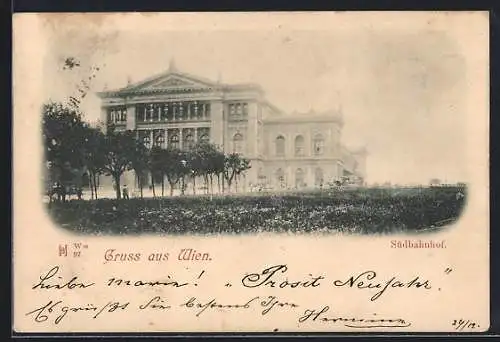 Südbahnhof.
W
97
Gruss aus Wien.
Liebe Marie! "Prosit Neujahr."
Es grüsst Sie bestens Ihre
Hermine